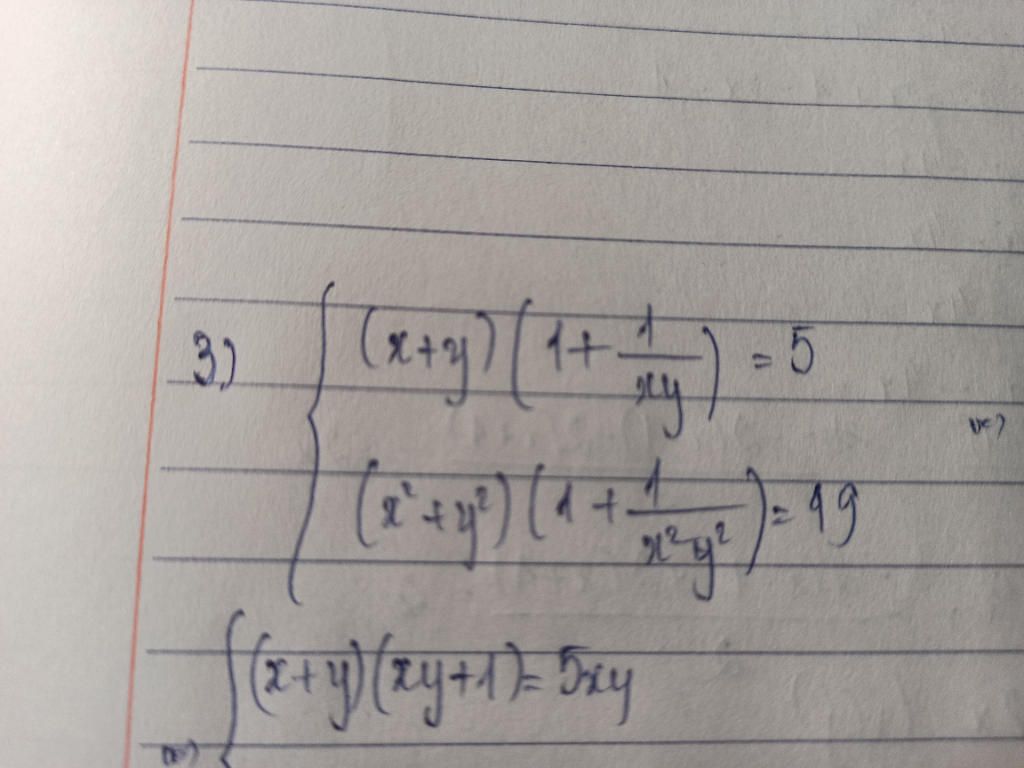 3) { (x+y)(1+1/xy) = 5
(x²+y²)(1+1/x²y²) = 49
{ (x+y)(xy+1) = 5xy